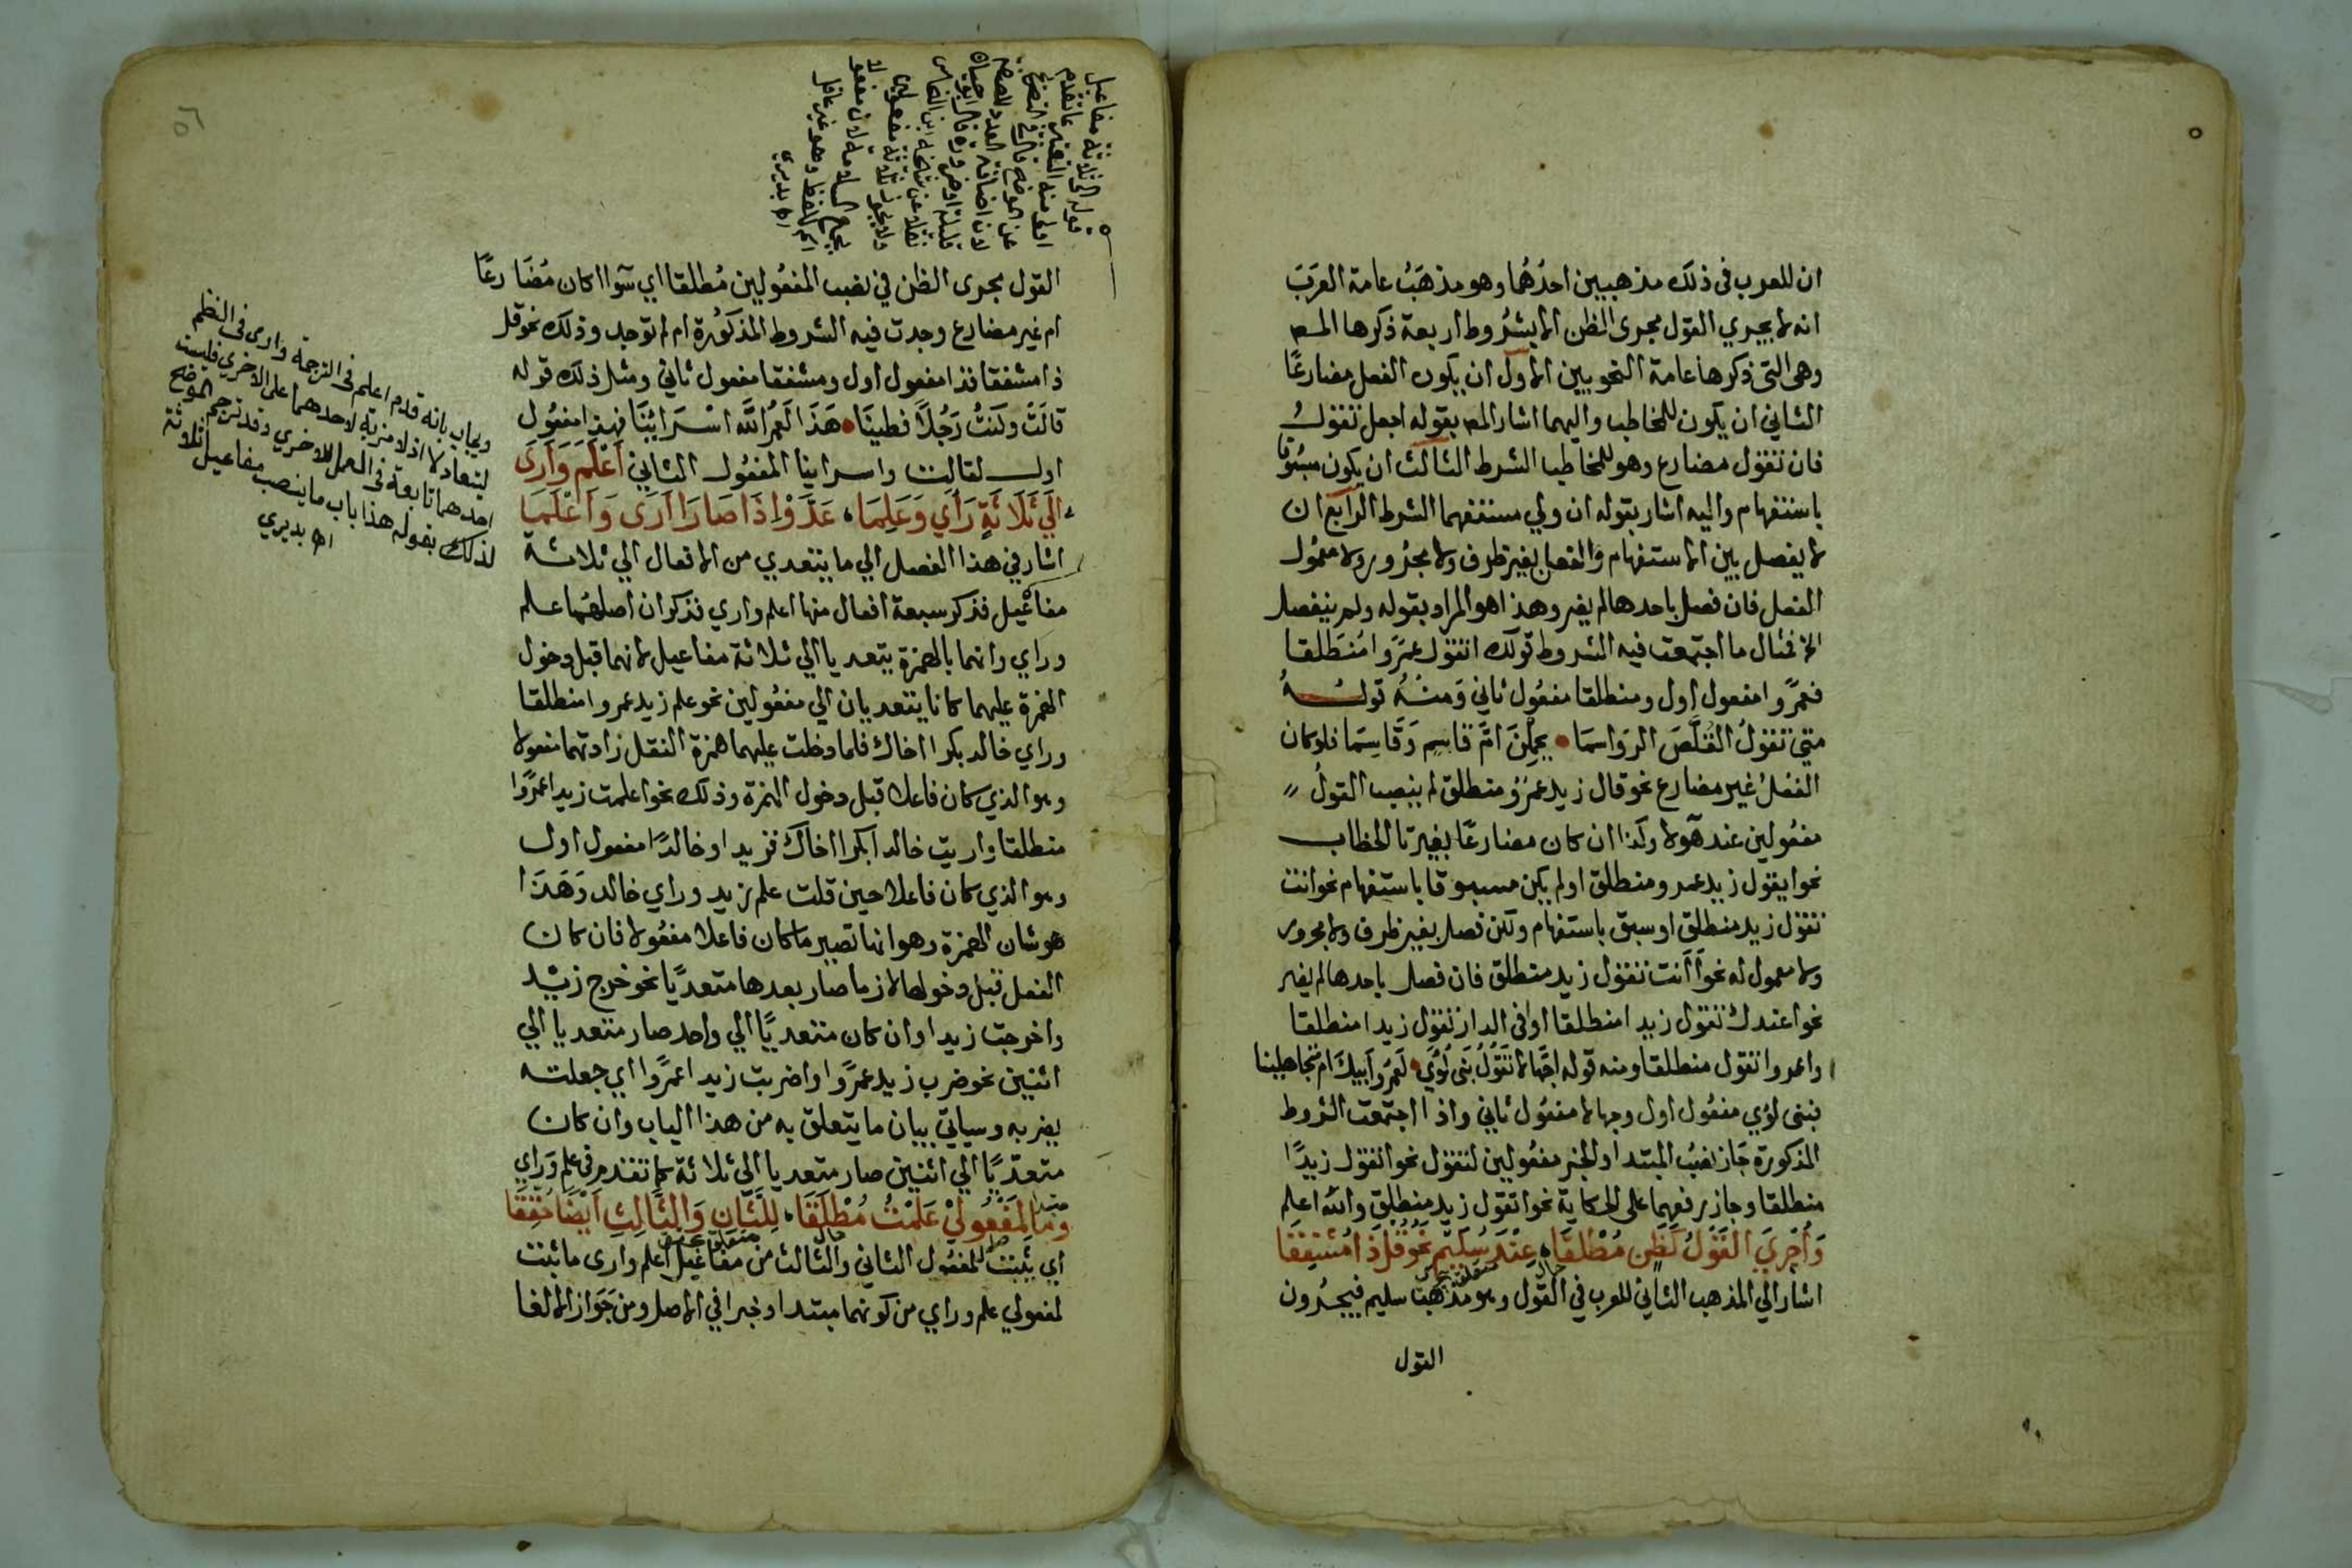 ان للعرب فى ذلك مذهبين احدُهُما وهو مذهَبُ عامة العَرَبَ
انه لا يجري القول مجرى الظن الا بشرُوط اربعة ذكرها المص
وهى التى ذكرها عامة النحويين الاول ان يكون الفعل مضارعًا
الثاني ان يكون للمخاطب واليهما اشار المص بقوله اجعل تقولُ
فان تقول مضارع وهو للمخاطب الشرط الثالث ان يكون مسبُوقا
باستفهام واليه اشار بقوله ان ولي مستفهما الشرط الرابع ان
لا يفصل بين الاستفهام والفعل بغير ظرف ولا مجرُور ولا معمُول
الفعل فان فصل باحدها لم يضر وهذا هو المراد بقوله ولم ينفصل
الا فمثال ما اجتمعت فيه الشروط قولك اتقول عمرًوا مُنطَلقا
فعمرًوا مفعول اول ومنطلقا مفعُول ثاني وَمنهُ قولــهُ
متى تقولُ القُلَّصَ الرَواسمَا • يحمِلنَ امَّ قاسِمٍ وَقاسِمَا فلو كان
الفعْلُ غير مضارع نحو قال زيد عمرٌو منطلق لم ينصب القولُ
مفعُولين عند هَولا وكذا ان كان مضارعًا بغير تا الخطاب
نحوا يقول زيد عمرو منطلق او لم يكن مسبوقا باستفهام نحو انت
تقول زيد منطلق او سبق باستفهام ولكن فصل بغير ظرف ولا مجرور
ولا معمول له نحو أأنت تقول زيد منطلق فان فصل باحدها لم يضر
نحو اعندك تقول زيدا منطلقا او افى الدار تقول زيدا منطلقا
واعمروا تقول منطلقا ومنه قوله اجُهَّالا تَقُولُ بَنى لُؤَي • لَعَمرُ اَبيكَ ام متجاهلينا
فبنى لؤي مفعُول اول وجهالا مفعُول ثاني واذا اجتمعت الشروط
المذكورة جَاز نصبُ المبتدا والخبر مفعُولين لتقول نحو اتقول زيدًا
منطلقا وجاز رفعهما على الحكاية نحو اتقول زيد منطلق والله اعلم
وَأُجْرِيَ القَوْلُ كَظَنٍ مُطْلَقَا • عِنْدَ سُلَيْمٍ نَحْوُ قُلْ ذَا مُشْفِقَا
حال متعلق
اشار الي المذهب الثاني للعرب في القول وهو مذهب سليم فيجرُون
القول
قوله الى ثلاثة مفاعيل
القول مجرى الظن في نصب المفعُولين مُطلقا اي سَوا اكان مُضَارعًا
ام غير مضارع وجدت فيه الشروط المذكوُرة ام لم توجد وذلك نحو قل
ذا مشفقا فذا مفعول اول ومشفقا مفعول ثاني ومثل ذلك قوله
قالَتْ وَكنتُ رَجُلاً فطينَا • هَذَا لَعَمْرُ اللهِ اسْرَائِيْنَا فهذا مفعُول
اول لقالت واسراينا المفعُول الثاني أَعْلَمَ وَأَرَى
الَي ثَلَاثَةٍ رَأَي وَعَلِمَا ، عَدَّوْا إِذَا صَارَا أَرَى وَأَعْلَمَا
اشار في هذا الفصل الي ما يتعدي من الافعال الي ثلاثة
مفاعيل فذكر سبعة افعال منها اعلم واري فذكر ان اصلهُما علم
وراي وانهما بالهمزة يتعديا الي ثلاثة مفاعيل لانهما قبل دخول
الهمزة عليهما كانا يتعديان الي مفعُولين نحو علم زيد عمروا منطلقا
وراي خالد بكرا اخاك فلما دخلت عليهما همزة النقل زادتهما مفعولا
وهو الذي كان فاعلا قبل دخول الهمزة وذلك نحو اعلمت زيدا عمرًوا
منطلقا واريت خالدا بكرا اخاك فزيدا وخالدًا مفعول اول
وهو الذي كان فاعلا حين قلت علم زيد وراي خالد وَهَذَا
هو شان الهمزة وهو انها تصير ما كان فاعلا مفعُولا فان كان
الفعل قبل دخولها لازما صار بعدها متعديًا نحو خرج زيد
واخرجت زيدا وان كان متعديًا الي واحد صار متعديا الي
اثنين نحو ضرب زيد عمرًوا واضربت زيدا عمرًوا اي جعلته
يضربه وسياتي بيان ما يتعلق به من هذا الباب وان كان
متعدّيًا الي اثنين صار متعديا الي ثلاثة كما تقدم في علم وَراي
وَمَا لِمَفْعُولَيْ عَلِمْتُ مُطْلَقَا ، لِلثَّانِ وَالثَّالِثِ أَيْضًا حُقِّقَا
اي يثبت للمفعُول الثاني والثالث من مفاعيل اعلم وارى ما ثبت
لمفعولي علم وراي من كونهما مبتدا وخبرا في الاصل ومن جَوَاز الالغا
ويجاب بانه قدم اعلم فى الترجمة وارى فى النظم
ليتعادلا اذ لا مزية لاحدهما على الاخرى فليست
احدهما تابعة فى العمل للاخرى وقد ترجم الموضح
لذلك بقوله هذا باب ما ينصب مفاعيل ثلاثة
اه بديري